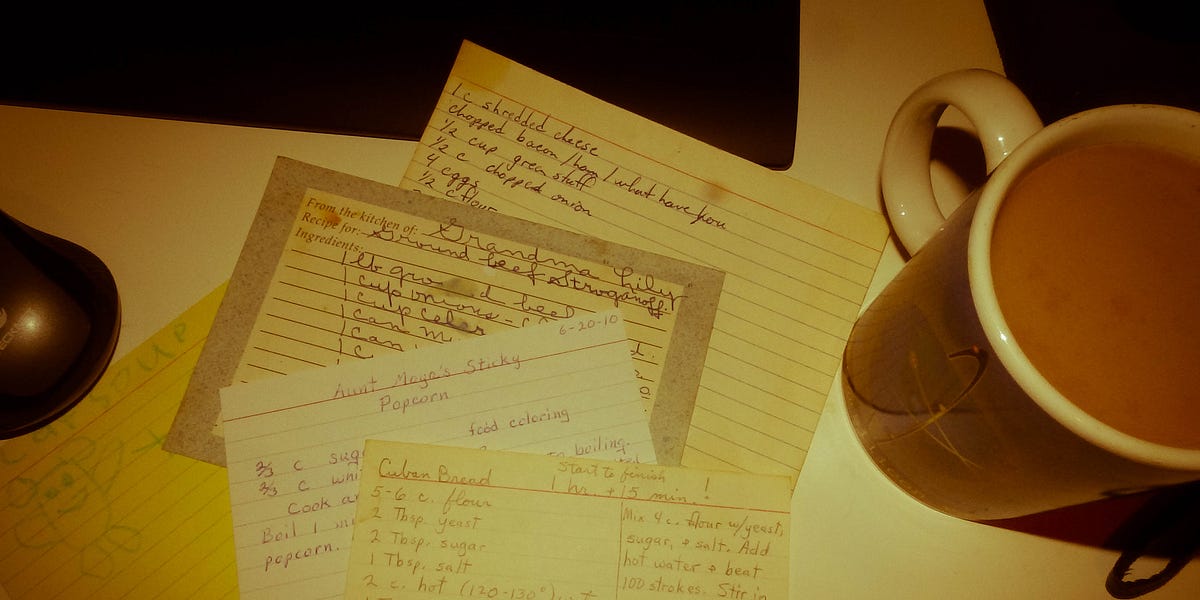 1 c shredded cheese
chopped bacon/ham/what have you
1/2 cup green stuff
1/2 c chopped onion
4 eggs
1/2 c flour
From the kitchen of: Grandma "Lily"
Recipe for: Ground beef Stroganoff!
Ingredients:
1 lb gro d beef
cup onions -
cup celer
can m
can
c
6-20-10
Aunt Maya's Sticky
Popcorn
food coloring
2/3 c suga
to boiling.
2/3 c whi
Cook an
Boil 1 mi
popcorn.
Cuban Bread
Start to finish
1 hr. + 15 min.!
5-6 c. flour
2 Tbsp yeast
2 Tbsp. sugar
1 Tbsp. salt
2 c. hot (120-130°)
Mix 4 c. flour w/yeast,
sugar, + salt. Add
hot water + beat
100 strokes. Stir in
soup